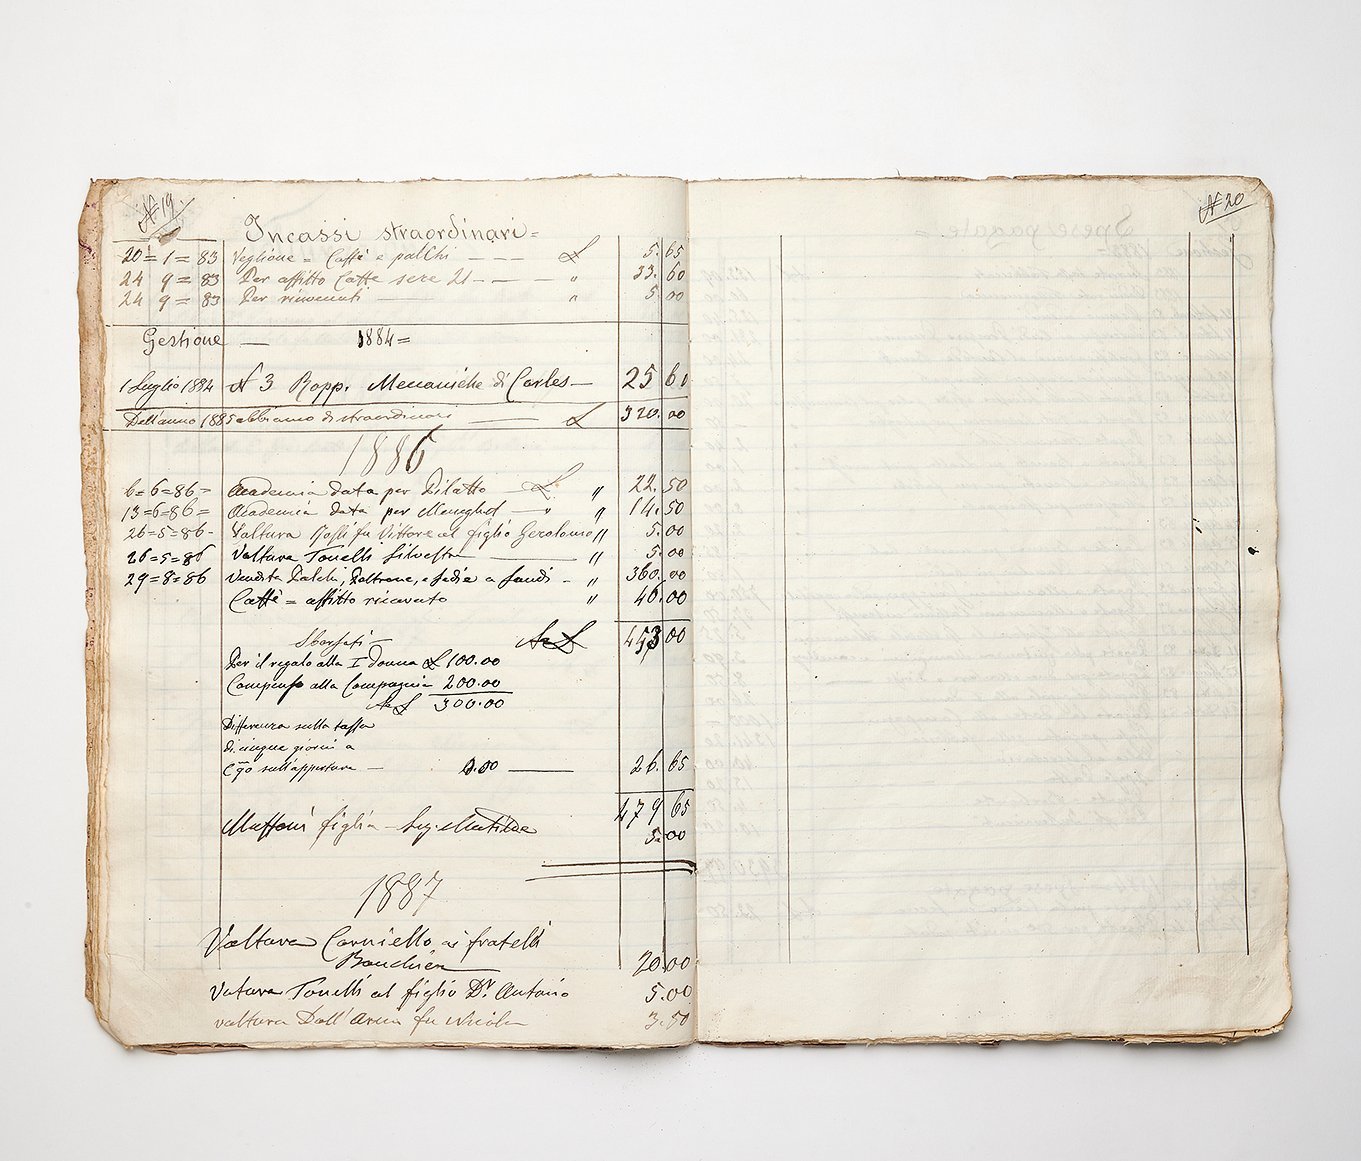 N 19
Incassi straordinari =
20 = 1 = 83 Veglione = Caffè e palchi £ 5. 65
24 9 = 83 Per affitto Caffe sere 21 " 33. 60
24 9 = 83 Per rinvenuti " 5. 00
Gestione — 1884 =
1 Luglio 1884 N 3 Rapp. Mecaniche di Carles — 25 60
Dell'anno 1885 abbiamo di straordinari — £ 320. 00
1886
6 = 6 = 86 = Academia data per Pilatto — £ " 22. 50
13 = 6 = 86 = Academia data per — " " 14. 50
26 = 5 = 86 - Voltura fu Vittore al figlio Gerolamo " 5. 00
26 = 5 = 86 Voltura Tonelli Silvestro — " 5. 00
29 = 8 = 86 Vendita Palchi, Poltrone, e sedie a — " 360. 00
Caffè = affitto ricavato " 46. 00
Sborsati — 453 00
Per il regalo alla I Donna £ 100. 00
Compenso alla Compagnia 200. 00
£ 300. 00
Differenza sulla tassa
di cinque giorni a
sull'appertura — 0.00 — 26. 65
479 65
figlia Matilde 5. 00
1887
Voltura Corniello ai fratelli
20. 00
Votura Tonelli al figlio Dr. Antonio 5. 00
voltura Dall' fu Nicola 3. 50
N 20